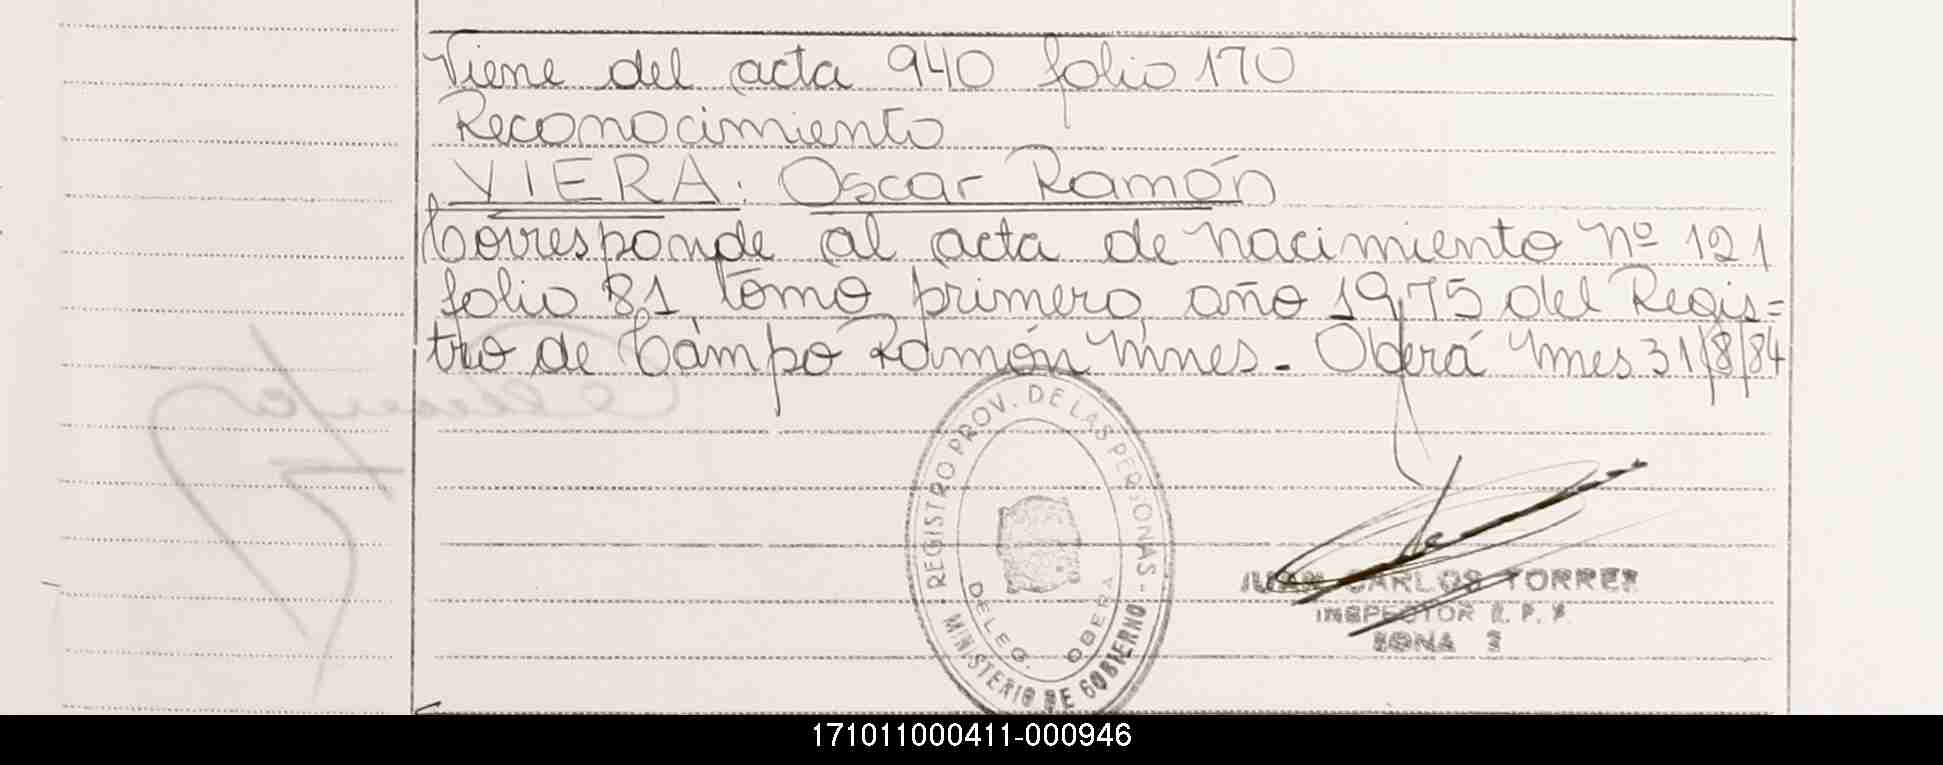 Viene del acta 940 folio 170
Reconocimiento
VIERA: Oscar Ramón
Corresponde al acta de nacimiento nº 121
folio 81, tomo primero, año 1975 del Regis=
tro de Campo Ramón Mnes.- Oberá Mnes 31/8/84
REGISTRO PROV. DE LAS PERSONAS -
DELEG. OBERA
MINISTERIO DE GOBIERNO
JUAN CARLOS TORRES
INSPECTOR R. P. P.
ZONA 3
171011000411-000946